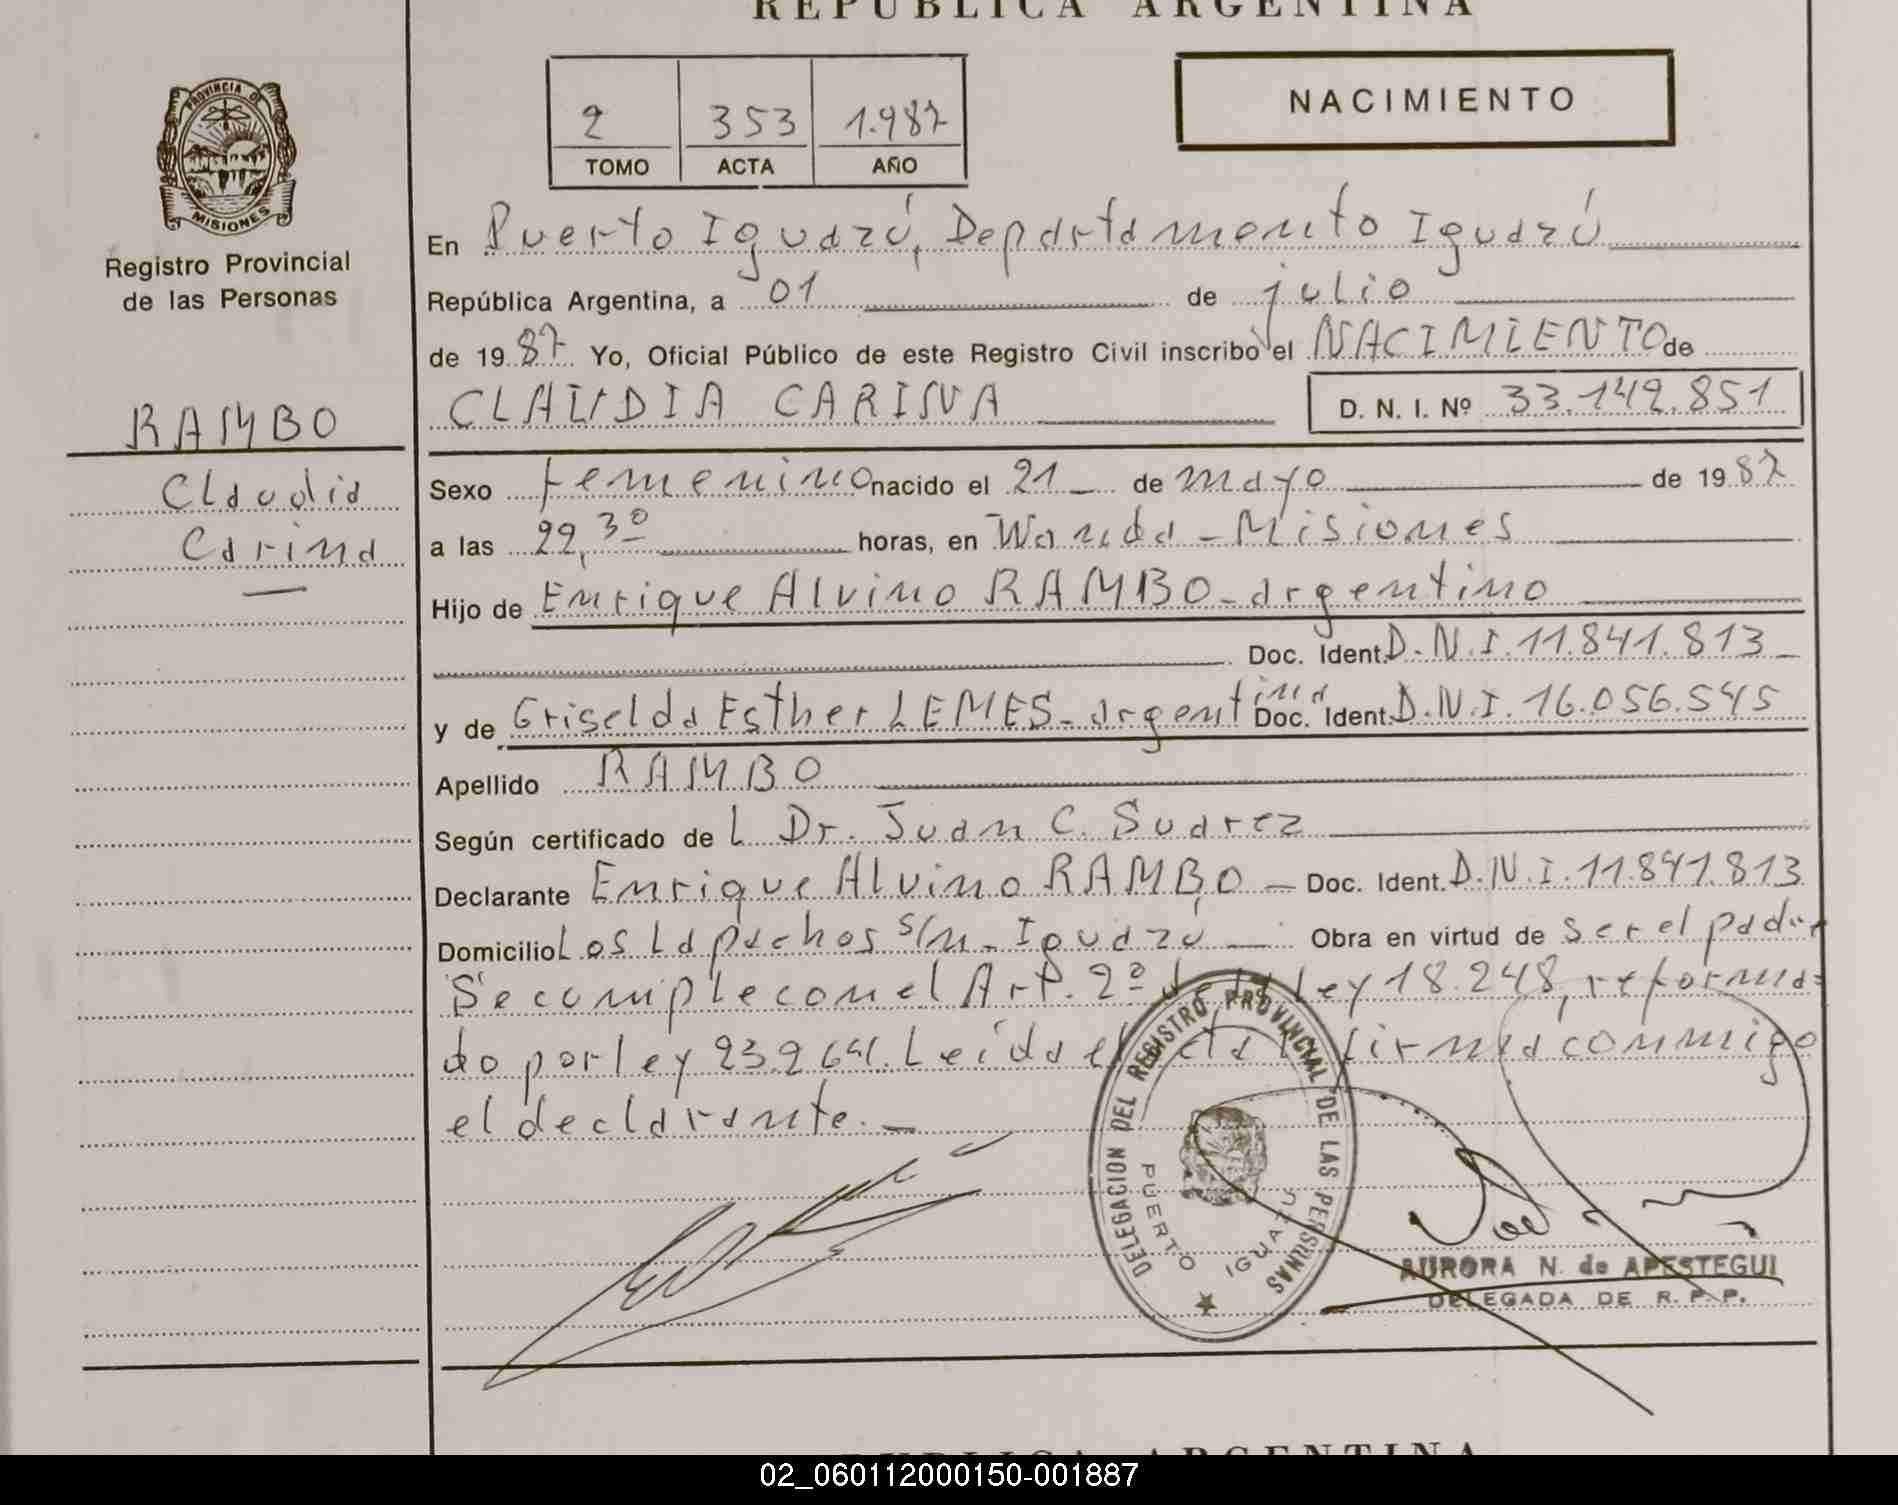 REPUBLICA ARGENTINA
PROVINCIA DE
MISIONES
Registro Provincial
de las Personas
2 353 1.987
TOMO ACTA AÑO
NACIMIENTO
En Puerto Iguazú, Departamento Iguazú
República Argentina, a 01 de julio
de 19 87 Yo, Oficial Público de este Registro Civil inscribo el NACIMIENTO de
CLAUDIA CARINA D. N. I. Nº 33.142.851
RAMBO
Claudia
Carina
Sexo femenino nacido el 21 de mayo de 19 87
a las 22,30 horas, en Wanda - Misiones
Hijo de Enrique Alvino RAMBO - argentino
Doc. Ident. D.N.I. 11.841.813
y de Griselda Esther LEMES - argentina Doc. Ident. D.N.I. 16.056.545
Apellido RAMBO
Según certificado de L Dr. Juan C. Suarez
Declarante Enrique Alvino RAMBO - Doc. Ident. D.N.I. 11.841.813
Domicilio Los Lapachos s/n - Iguazú Obra en virtud de ser el padre
Se cumple con el Art. 2º de la Ley 18.248, reforma-
do por ley 23.264. Leída el acta la firma conmigo
el declarante. -
DELEGACION DEL REGISTRO PROVINCIAL DE LAS PERSONAS
PUERTO IGUAZU
AURORA N. de APESTEGUI
DELEGADA DE R. P. P.
REPUBLICA ARGENTINA
02_060112000150-001887